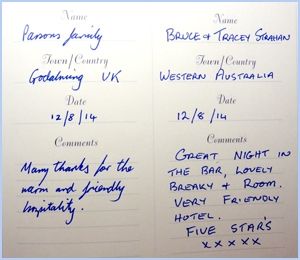 Name
Parsons family
Town/Country
Godalming UK
Date
12/8/14
Comments
Many thanks for the
warm and friendly
hospitality.
Name
BRUCE & TRACEY STRAHAN
Town/Country
WESTERN AUSTRALIA
Date
12/8/14
Comments
GREAT NIGHT IN
THE BAR, LOVELY
BREAKY & ROOM.
VERY FRIENDLY
HOTEL.
FIVE STAR'S
x x x x x